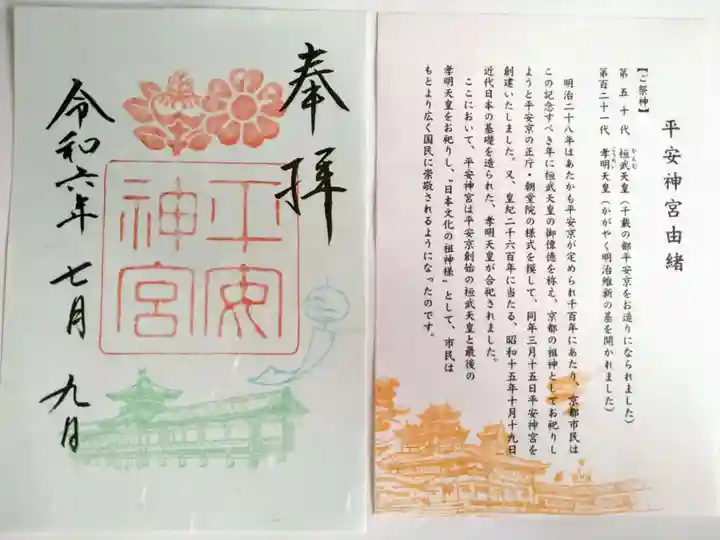 奉拝
平安神宮
令和六年 七月 九日
平安神宮由緒
【ご祭神】
第五十代 桓武天皇(千載の都平安京をお造りになられました)
かんむ
第百二十一代 孝明天皇(かがやく明治維新の基を開かれました)
こうめい
明治二十八年はあたかも平安京が定められ千百年にあたり、京都市民は
この記念すべき年に桓武天皇の御偉徳を称え、京都の祖神としてお祀りし
ようと平安京の正庁・朝堂院の様式を模して、同年三月十五日平安神宮を
創建いたしました。又、皇紀二千六百年に当たる、昭和十五年十月十九日
近代日本の基礎を造られた、孝明天皇が合祀されました。
ここにおいて、平安神宮は平安京創始の桓武天皇と最後の
孝明天皇をお祀りし、"日本文化の祖神様"として、市民は
もとより広く国民に崇敬されるようになったのです。